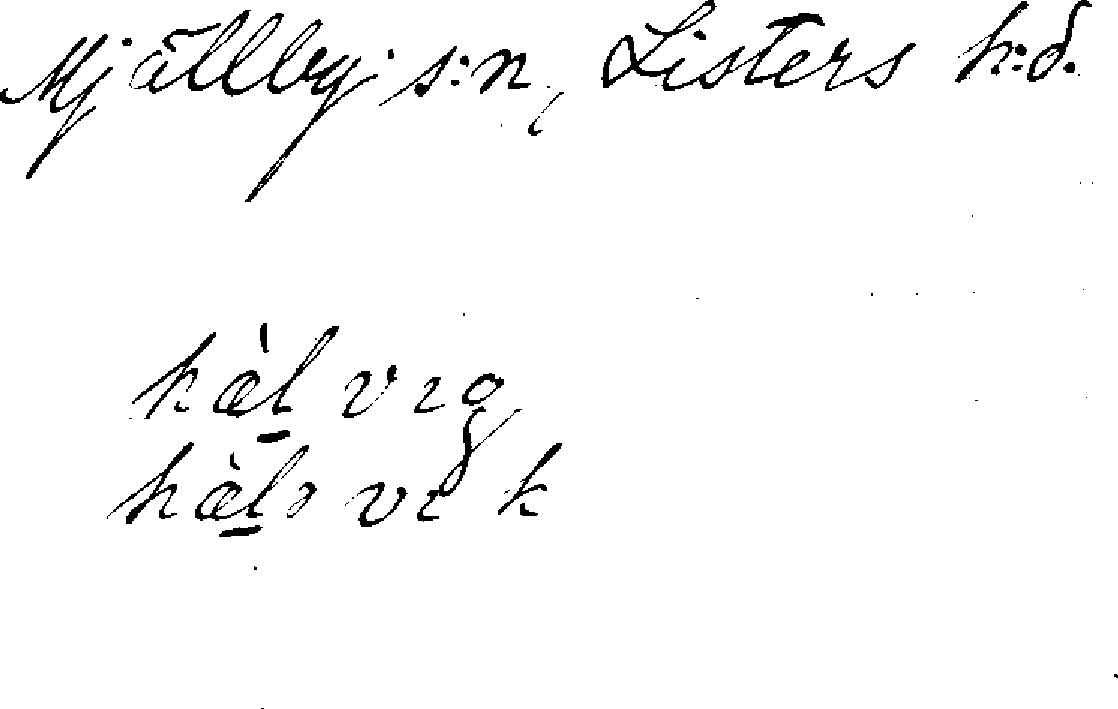 Mjällby s:n, Listers h:d.
hæ̀l vıg
hæ̀lə vı k